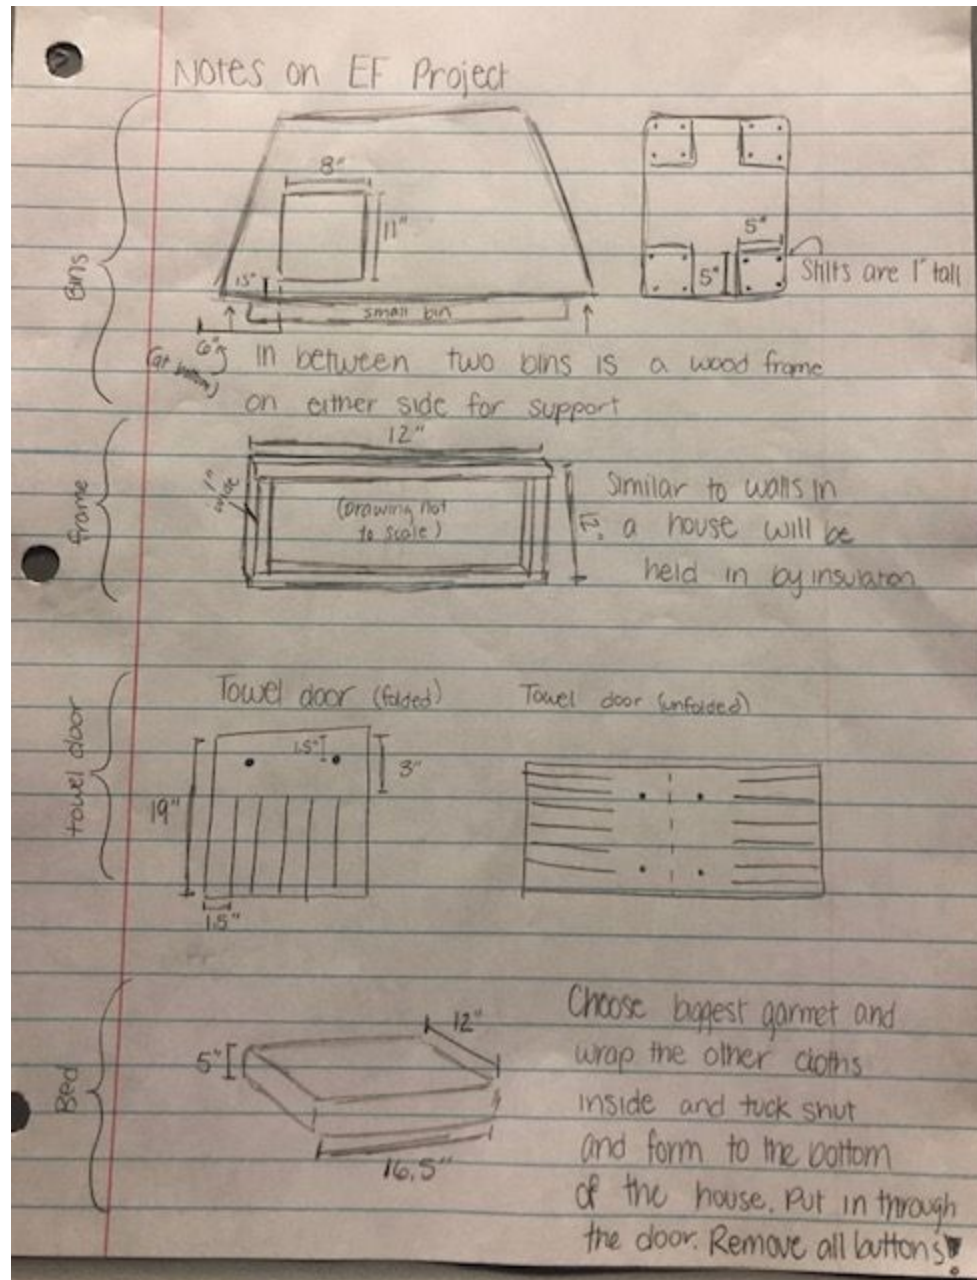 Notes on EF Project
Bins
8"
11"
1.5"
small bin
6"
(at bottom)
5"
5"
Stilts are 1" tall
In between two bins is a wood frame
on either side for support
frame
12"
1" wide
(Drawing not
to scale)
12"
Similar to walls in
a house will be
held in by insulation
towel door
Towel door (folded)
Towel door (unfolded)
1.5"
3"
19"
1.5"
Bed
12"
5"
16.5"
Choose biggest garmet and
wrap the other cloths
inside and tuck shut
and form to the bottom
of the house. Put in through
the door. Remove all buttons!